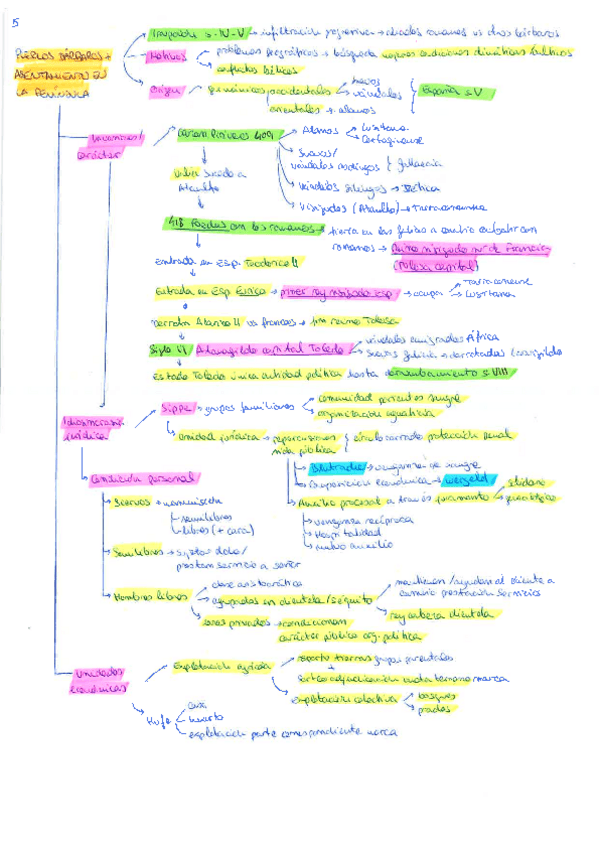 5
Irrupción s. IV-V → infiltración progresiva → aliados romanos vs otros bárbaros
PUEBLOS BÁRBAROS +
ASENTAMIENTO EN
LA PENÍNSULA
Motivos
problemas demográficos + búsqueda mejores condiciones climáticas/cultivos
conflictos bélicos
Origen
germánicos occidentales
suevos
vándalos
orientales → alanos
España s. V
Invasiones/
carácter
Cruzan Pirineos 409
Alanos
Lusitania
Cartaginense
Suevos/
vándalos asdingos
Gallaecia
Vándalos silingos → Bética
Visigodos (Ataulfo) → Tarraconense
Walia sucede a
Ataulfo
418 Foedus con los romanos
tierra en las Galias a cambio luchar con
romanos →
Reino visigodo sur de Francia
(Tolosa capital)
Entrada en Esp. Teodorico II
Entrada en Esp Eurico → primer rey visigodo esp → ocupa
Tarraconense
Lusitania
Derrota Alarico II vs francos → fin reino Tolosa
Siglo VI Atanagildo capital Toledo
vándalos emigrados África
Suevos Galicia → derrotados Leovigildo
Estado Toledo única entidad política hasta derrumbamiento s. VIII
Idiosincrasia
jurídica
Sippe → grupos familiares
comunidad parientes sangre
organización agnaticia
Unidad jurídica → repercusiones
vida pública
círculo cerrado protección penal
→ venganza de sangre
Composición económica → wergeld
Auxilio procesal a través juramento
solidario
venganza recíproca
Hospitalidad
mutuo auxilio
Condición personal
Siervos
semilibres
libres (+ cara)
Semilibres → sujetos dcho/
prestan servicio a señor
Hombres libres
clase aristocrática
agrupados en clientela/séquito
mantienen/ayudan al cliente a
cambio prestación servicios
rey cabeza clientela
lazos privados → condicionan
carácter público org. política
Unidades
económicas
Explotación agrícola
reparto tierras grupos parentales
sorteo adjudicación cuota terreno marca
explotación colectiva
bosques
prados
Hufe
casa
huerto
explotación parte correspondiente marca